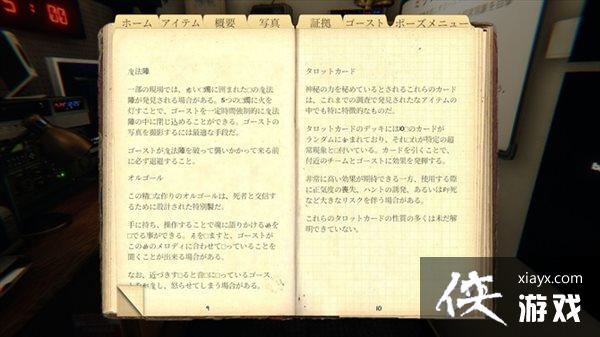 5:00
ホーム アイテム 概要 写真 証拠 ゴースト ポーズメニュー
法陣
一部の現場では、□□□燭に囲まれた□の□法
陣が発見される場合がある。5つの□燭に火を
灯すことで、ゴーストを一定時間強制的に□法
陣の中に閉じ込めることができる。ゴーストの
写真を撮影するには最適な手段だ。
ゴーストが□法陣を破って襲いかかって来る前
に必ず退避すること。
オルゴール
この精□な作りのオルゴールは、死者と交信す
るために設計された特別製だ。
手に持ち、操作することで魂に語りかける□を
□でる事ができる。□を□ますと、ゴーストが
この□のメロディに合わせて□っていることを
聞くことが出来る場合がある。
なお、近づきす□ると音□に□っているゴース
し、怒らせてしまう場合がある。
9
タロットカード
神秘の力を秘めているとされるこれらのカード
は、これまでの調査で発見されたなアイテムの
中でも特に特徴的なものだ。
タロットカードのデッキには10□のカードが
ランダムに□まれており、それ□れが特定の超
常現象と□付いている。カードを引くことで、
付近のチームとゴーストに効果を発揮する。
非常に高い効果が期待できる一方、使用する際
に正気度の喪失、ハントの誘発、あるいは□死
など大きなリスクを伴う場合がある。
これらのタロットカードの性質の多くは未だ解
明できていない。
10
侠 xiayx.com
游戏